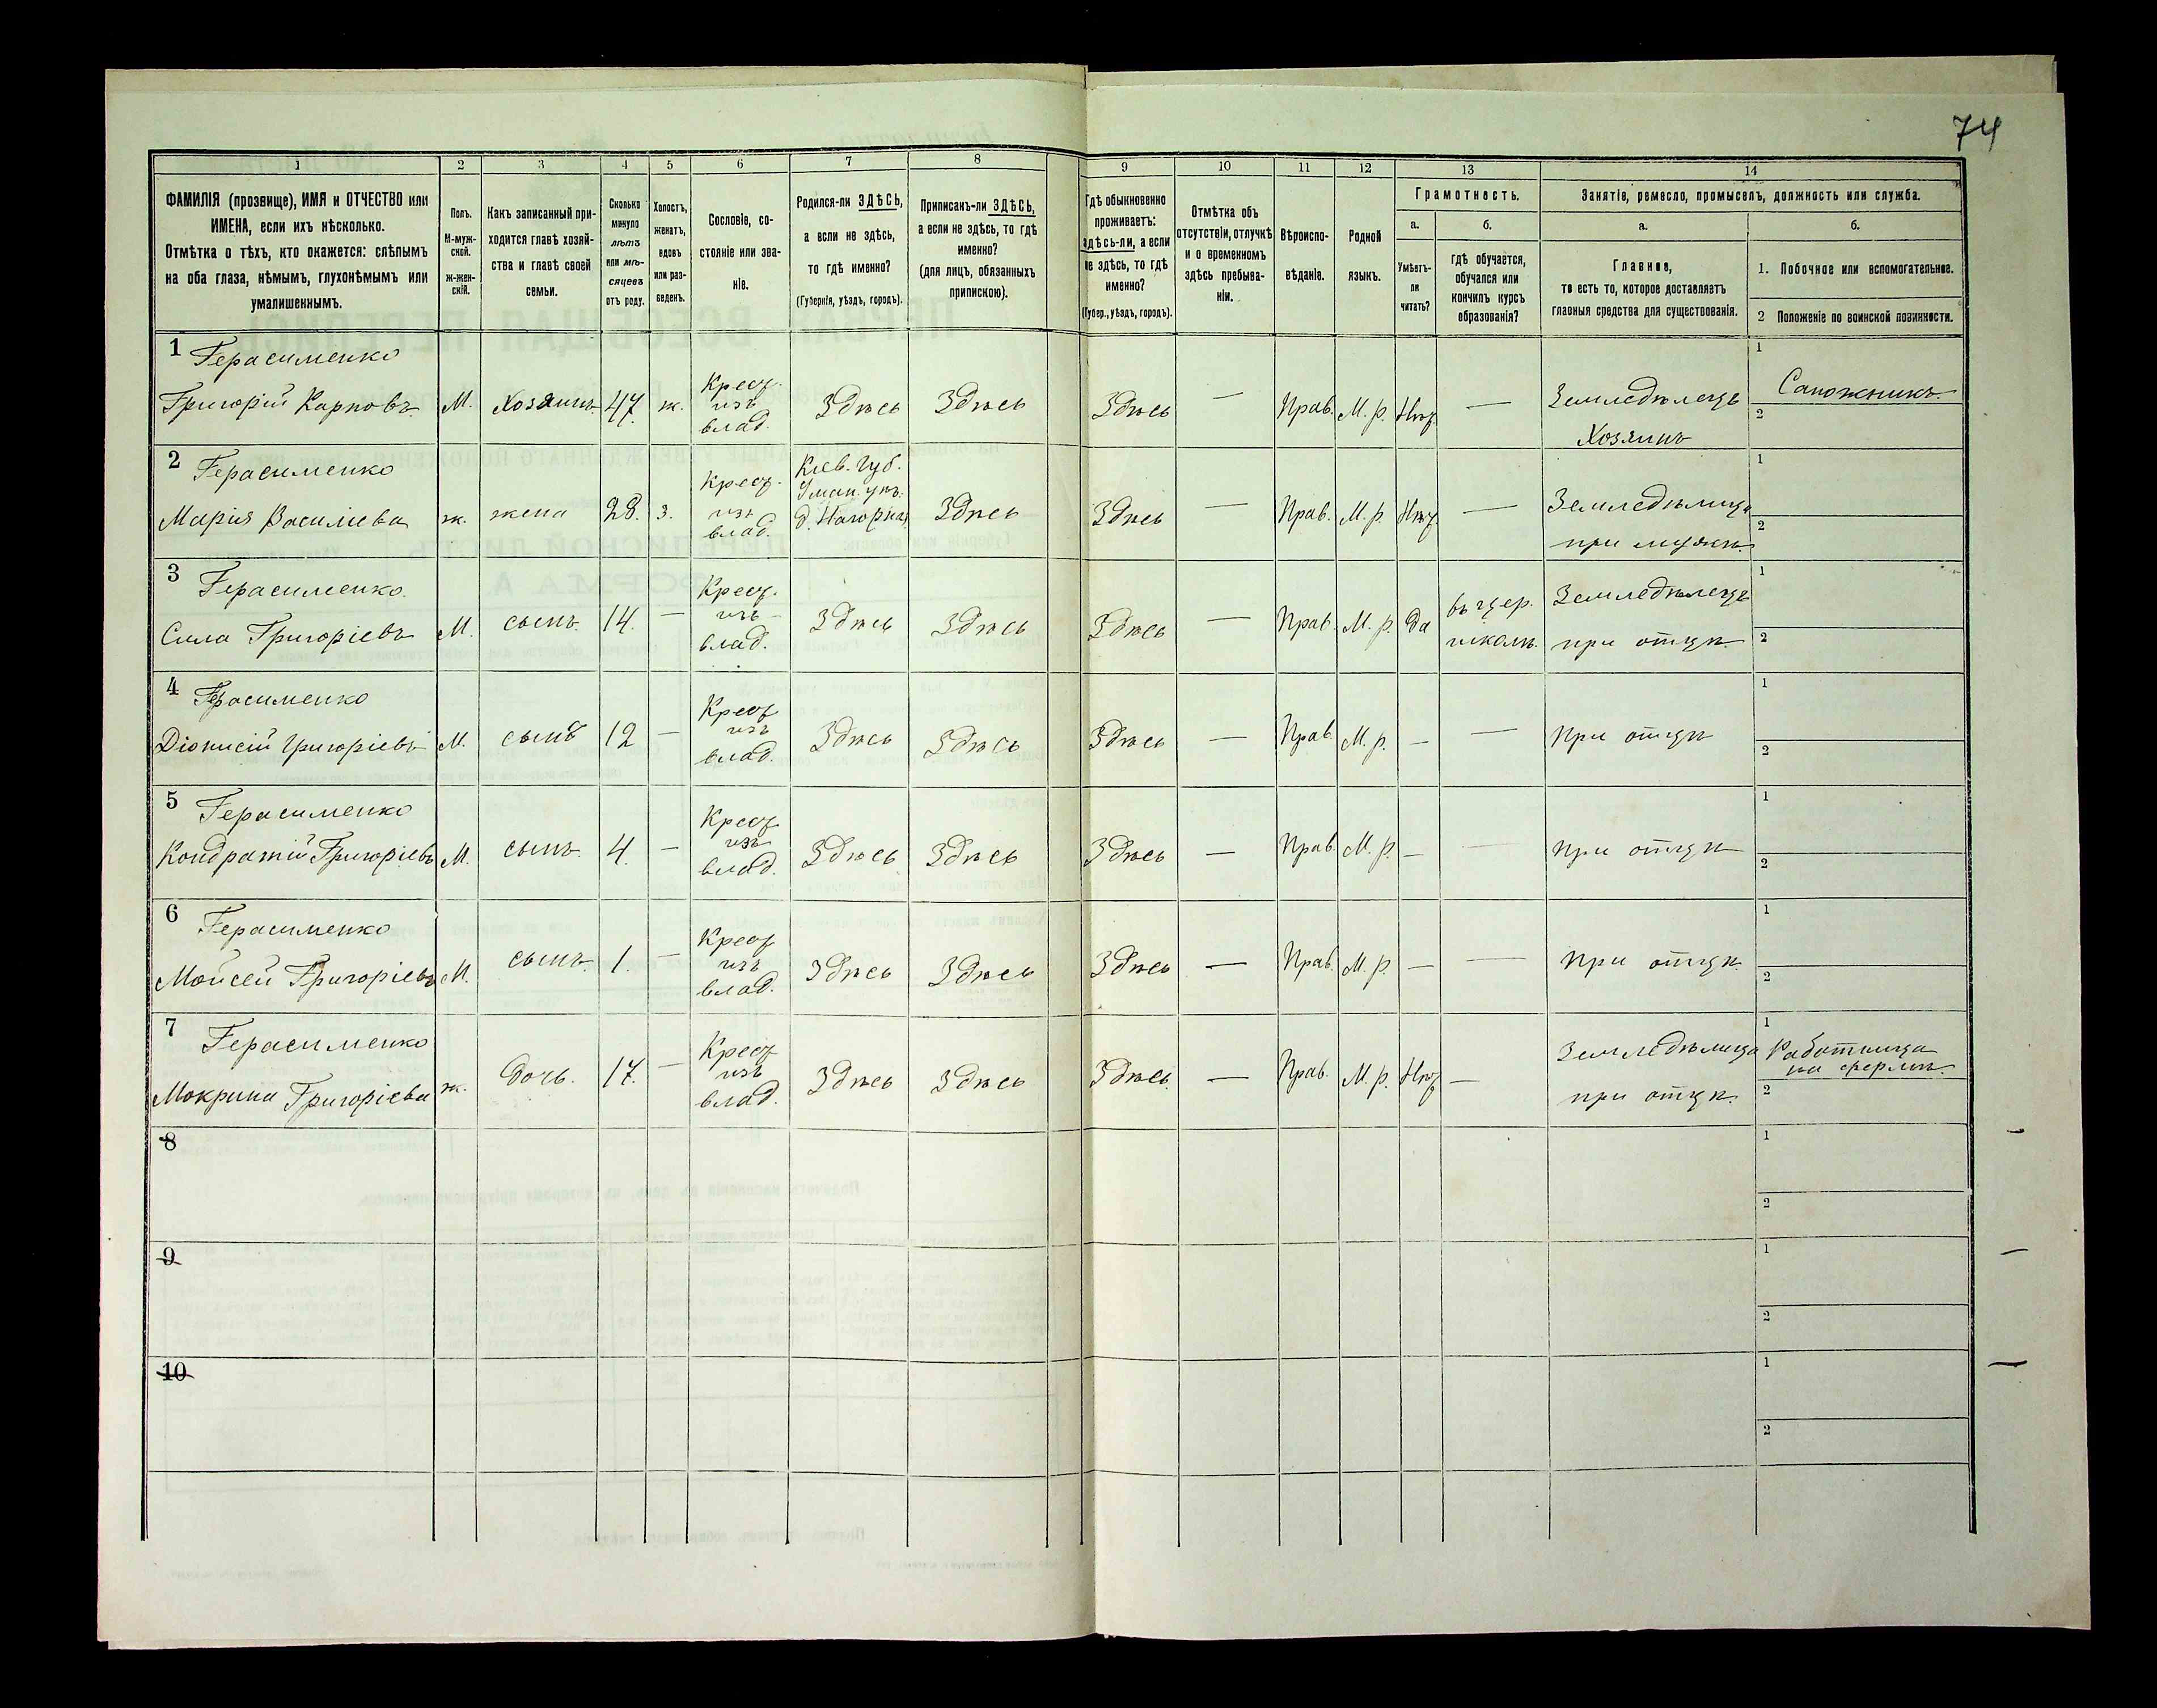 74
1 2 3 4 5 6 7 8 9 10 11 12 13 14
ФАМИЛІЯ (прозвище), ИМЯ и ОТЧЕСТВО или
ИМЕНА, если ихъ нѣсколько.
Отмѣтка о тѣхъ, кто окажется: слѣпымъ
на оба глаза, нѣмымъ, глухонѣмымъ или
умалишеннымъ.
Полъ.
М-муж-
ской.
ж-жен-
скій.
Какъ записанный при-
ходится главѣ хозяй-
ства и главѣ своей
семьи.
Сколько
минуло
лѣтъ
или мѣ-
сяцевъ
отъ роду.
Холостъ,
женатъ,
вдовъ
или раз-
веденъ.
Сословіе, со-
стояніе или зва-
ніе.
Родился-ли ЗДѢСЬ,
а если не здѣсь,
то гдѣ именно?
(Губернія, уѣздъ, городъ).
Приписанъ-ли ЗДѢСЬ,
а если не здѣсь, то гдѣ
именно?
(для лицъ, обязанныхъ
припискою).
Гдѣ обыкновенно
проживаетъ:
здѣсь-ли, а если
не здѣсь, то гдѣ
именно?
(Губер., уѣздъ, городъ).
Отмѣтка объ
отсутствіи, отлучкѣ
и о временномъ
здѣсь пребыва-
ніи.
Вѣроиспо-
вѣданіе.
Родной
языкъ.
Грамотность.
а.
Умѣетъ-
ли
читать?
б.
гдѣ обучается,
обучался или
кончилъ курсъ
образованія?
Занятіе, ремесло, промыселъ, должность или служба.
а.
Главное,
то есть то, которое доставляетъ
главныя средства для существованія.
б.
1. Побочное или вспомогательное.
2 Положеніе по воинской повинности.
1 Герасименко
Григорій Карповъ М. Хозяинъ 47. ж. Крест. изъ влад. Здѣсь Здѣсь Здѣсь — Прав. М. р. Нѣт. — Земледѣлецъ
Хозяинъ
1 Сапожникъ
2
2 Герасименко
Марія Василіева ж. жена 28. з. Крест. изъ влад. Кіев. губ. Уман. уѣз. д. Нагорная Здѣсь Здѣсь — Прав. М. р. Нѣт. — Земледѣлица
при мужѣ.
1
2
3 Герасименко.
Сила Григоріевъ М. сынъ. 14. — Крест. изъ влад. Здѣсь Здѣсь Здѣсь — Прав. М. р. да въ цер. школѣ. Земледѣлецъ
при отцѣ.
1
2
4 Герасименко
Діонисій Григоріевъ М. сынъ 12 — Крест изъ влад. Здѣсь Здѣсь Здѣсь — Прав. М. р. — — При отцѣ
1
2
5 Герасименко
Кондратій Григоріевъ М. сынъ. 4. — Крест изъ влад. Здѣсь Здѣсь Здѣсь — Прав. М. р. — — При отцѣ
1
2
6 Герасименко
Мойсей Григоріевъ М. сынъ. 1. — Крест изъ влад. Здѣсь Здѣсь Здѣсь — Прав. М. р. — — При отцѣ.
1
2
7 Герасименко
Мокрина Григоріева ж. дочь. 17. — Крест изъ влад. Здѣсь Здѣсь Здѣсь. — Прав. М. р. Нѣт — Земледѣлица
при отцѣ.
1 Работница
на фермѣ.
2
8
1
2
9
1
2
10
1
2